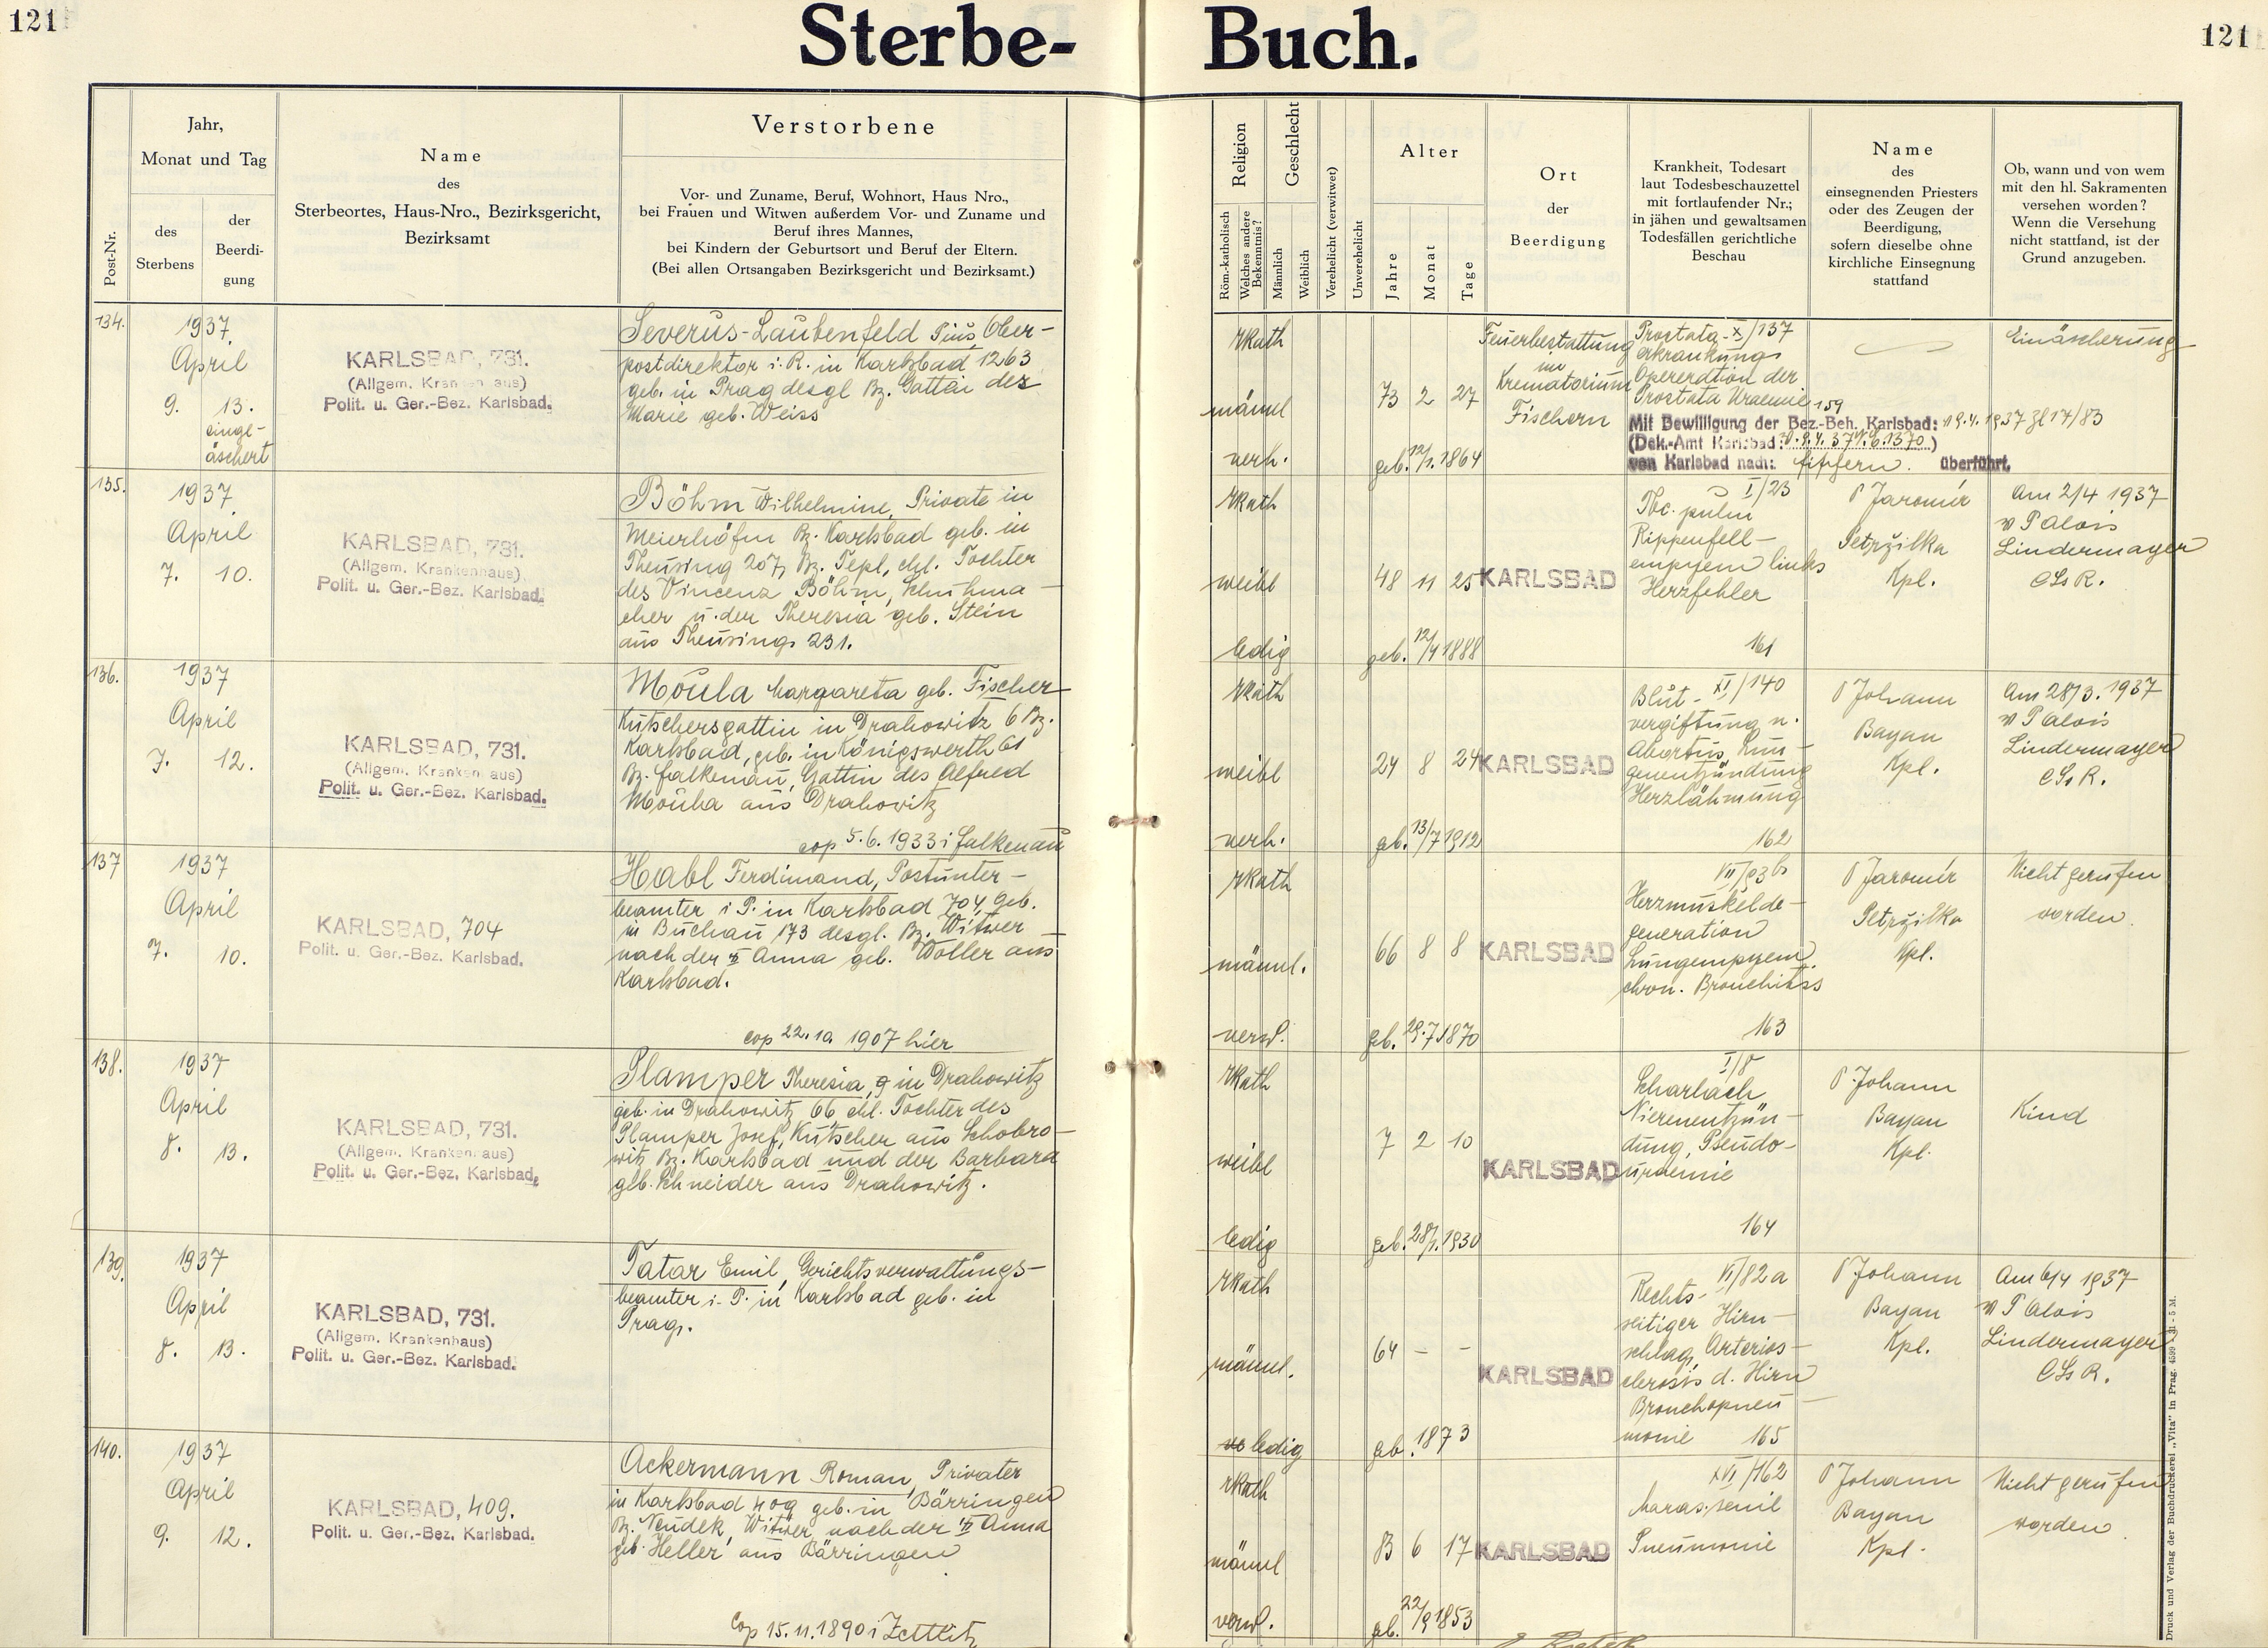 121
Sterbe-Buch.
121
Post-Nr.
Jahr,
Monat und Tag
des
Sterbens
der
Beerdi-
gung
Name
des
Sterbeortes, Haus-Nro., Bezirksgericht,
Bezirksamt
Verstorbene
Vor- und Zuname, Beruf, Wohnort, Haus Nro.,
bei Frauen und Witwen außerdem Vor- und Zuname und
Beruf ihres Mannes,
bei Kindern der Geburtsort und Beruf der Eltern.
(Bei allen Ortsangaben Bezirksgericht und Bezirksamt.)
Religion
Röm.-katholisch
Welches andere
Bekenntnis?
Geschlecht
Männlich
Weiblich
Verehelicht (verwitwet)
Unverehelicht
Alter
Jahre
Monat
Tage
Ort
der
Beerdigung
Krankheit, Todesart
laut Todesbeschauzettel
mit fortlaufender Nr.;
in jähen und gewaltsamen
Todesfällen gerichtliche
Beschau
Name
des
einsegnenden Priesters
oder des Zeugen der
Beerdigung,
sofern dieselbe ohne
kirchliche Einsegnung
stattfand
Ob, wann und von wem
mit den hl. Sakramenten
versehen worden?
Wenn die Versehung
nicht stattfand, ist der
Grund anzugeben.
134.
1937
April
9. 13.
einge-
äschert
KARLSBAD, 731.
(Allgem. Kranenaus)
Polit. u. Ger.-Bez. Karlsbad.
Severus-Laubenfeld Pius, Ober-
postdirektor i. R. in Karlsbad 1263
geb. in Prag desgl Bz. Gattai des
Marie geb. Weiss
rkath
männl
verh.
73 2 27
geb. 12/1. 1864
Feuerbestattung
im
Krematorium
Fischern
Prostata- X/137
erkrankung
Opereration der
Prostata Uraemie 159
Mit Bewilligung der Bez.-Beh. Karlsbad: 19.4.1937 Zl 17/83
(Dek.-Amt Karlsbad: 9.4.37 1370)
von Karlsbad nach: überführt.
Einäscherung
135.
1937
April
7. 10.
KARLSBAD, 731.
(Allgem. Krankenhaus)
Polit. u. Ger.-Bez. Karlsbad.
Böhm Wilhelmine, Private in
Meierhöfen Bz. Karlsbad geb. in
Theusing 207, Bz. Tepl, ehl. Tochter
des Vincenz Böhm, Schuhma-
cher u. der Theresia geb. Stein
aus Theusing 231.
rkath
weibl
ledig
48 11 25
geb. 12/4 1888
KARLSBAD
I/23
Tbc. pulm
Rippenfell-
empyem links
Herzfehler
161
P Jaromír
Petržilka
Kpl.
Am 2/4 1937
v P Alois
Lindermayer
CSsR.
136.
1937
April
7. 12.
KARLSBAD, 731.
(Allgem. Kranken aus)
Polit. u. Ger.-Bez. Karlsbad.
Moula Margareta geb. Fischer
Kutschersgattin in Drahowitz 6 Bz.
Karlsbad, geb. in Königswerth 61
Bz. Falkenau, Gattin des Alfred
Mouha aus Drahowitz
cop 5.6.1933 i Falkenau
rkath
weibl
verh.
24 8 24
geb. 13/7 1912
KARLSBAD
Blut- XI/140
vergiftung n.
Abortus, Lun-
genentzündung
Herzlähmung
162
P Johann
Bayan
Kpl.
Am 28/3. 1937
v P Alois
Lindermayer
CSsR.
137
1937
April
7. 10.
KARLSBAD, 704
Polit. u. Ger.-Bez. Karlsbad.
Habl Ferdinand, Postunter-
beamter i P. in Karlsbad 704, geb.
in Buchau 173 desgl. Bz. Witwer
nach der Anna geb. Woller aus
Karlsbad.
cop 22.10. 1907 hier
rkath
männl.
verw.
66 8 8
geb. 29.7 1870
KARLSBAD
VII/93b
Herzmuskelde-
generation
Lungempyem
chron. Bronchitis
163
P Jaromír
Petržilka
Kpl.
Nicht gerufen
worden.
138.
1937
April
8. 13.
KARLSBAD, 731.
(Allgem. Krankenaus)
Polit. u. Ger.-Bez. Karlsbad.
Plamper Theresia, in Drahowitz
geb. in Drahowitz 66 ehl. Tochter des
Plamper Josef, Kutscher aus Schobro-
witz Bz. Karlsbad und der Barbara
geb. Schneider aus Drahowitz.
rkath
weibl
ledig
7 2 10
geb. 28/1. 1930
KARLSBAD
I/8
Scharlach,
Nierenentzün-
dung, Pseudo-
uraemie
164
P Johann
Bayan
Kpl.
Kind
139.
1937
April
8. 13.
KARLSBAD, 731.
(Allgem. Krankenhaus)
Polit. u. Ger.-Bez. Karlsbad.
Tatar Emil, Gerichtsverwaltungs-
beamter i. P. in Karlsbad geb. in
Prag.
rkath
männl.
ledig
64 - -
geb. 1873
KARLSBAD
VI/82a
Rechts-
seitiger Hirn-
schlag, Arterios-
clerosis d. Hirn
Bronchopneu-
monie 165
P Johann
Bayan
Kpl.
Am 6/4 1937
v P Alois
Lindermayer
CSsR.
140.
1937
April
9. 12.
KARLSBAD, 409.
Polit. u. Ger.-Bez. Karlsbad.
Ackermann Roman, Privater
in Karlsbad 409 geb. in Bärringen
Bz. Neudek, Witwer nach der Anna
geb. Heller aus Bärringen
Cop 15.11.1890 i Zettlitz
rkath
männl
verw.
83 6 17
geb. 22/9 1853
KARLSBAD
XVI/162
Maras. senil
Pneumonie
P Johann
Bayan
Kpl.
Nicht gerufen
worden.
Druck und Verlag der Buchdruckerei „Vita" in Prag. 4599 31 - 5 M.